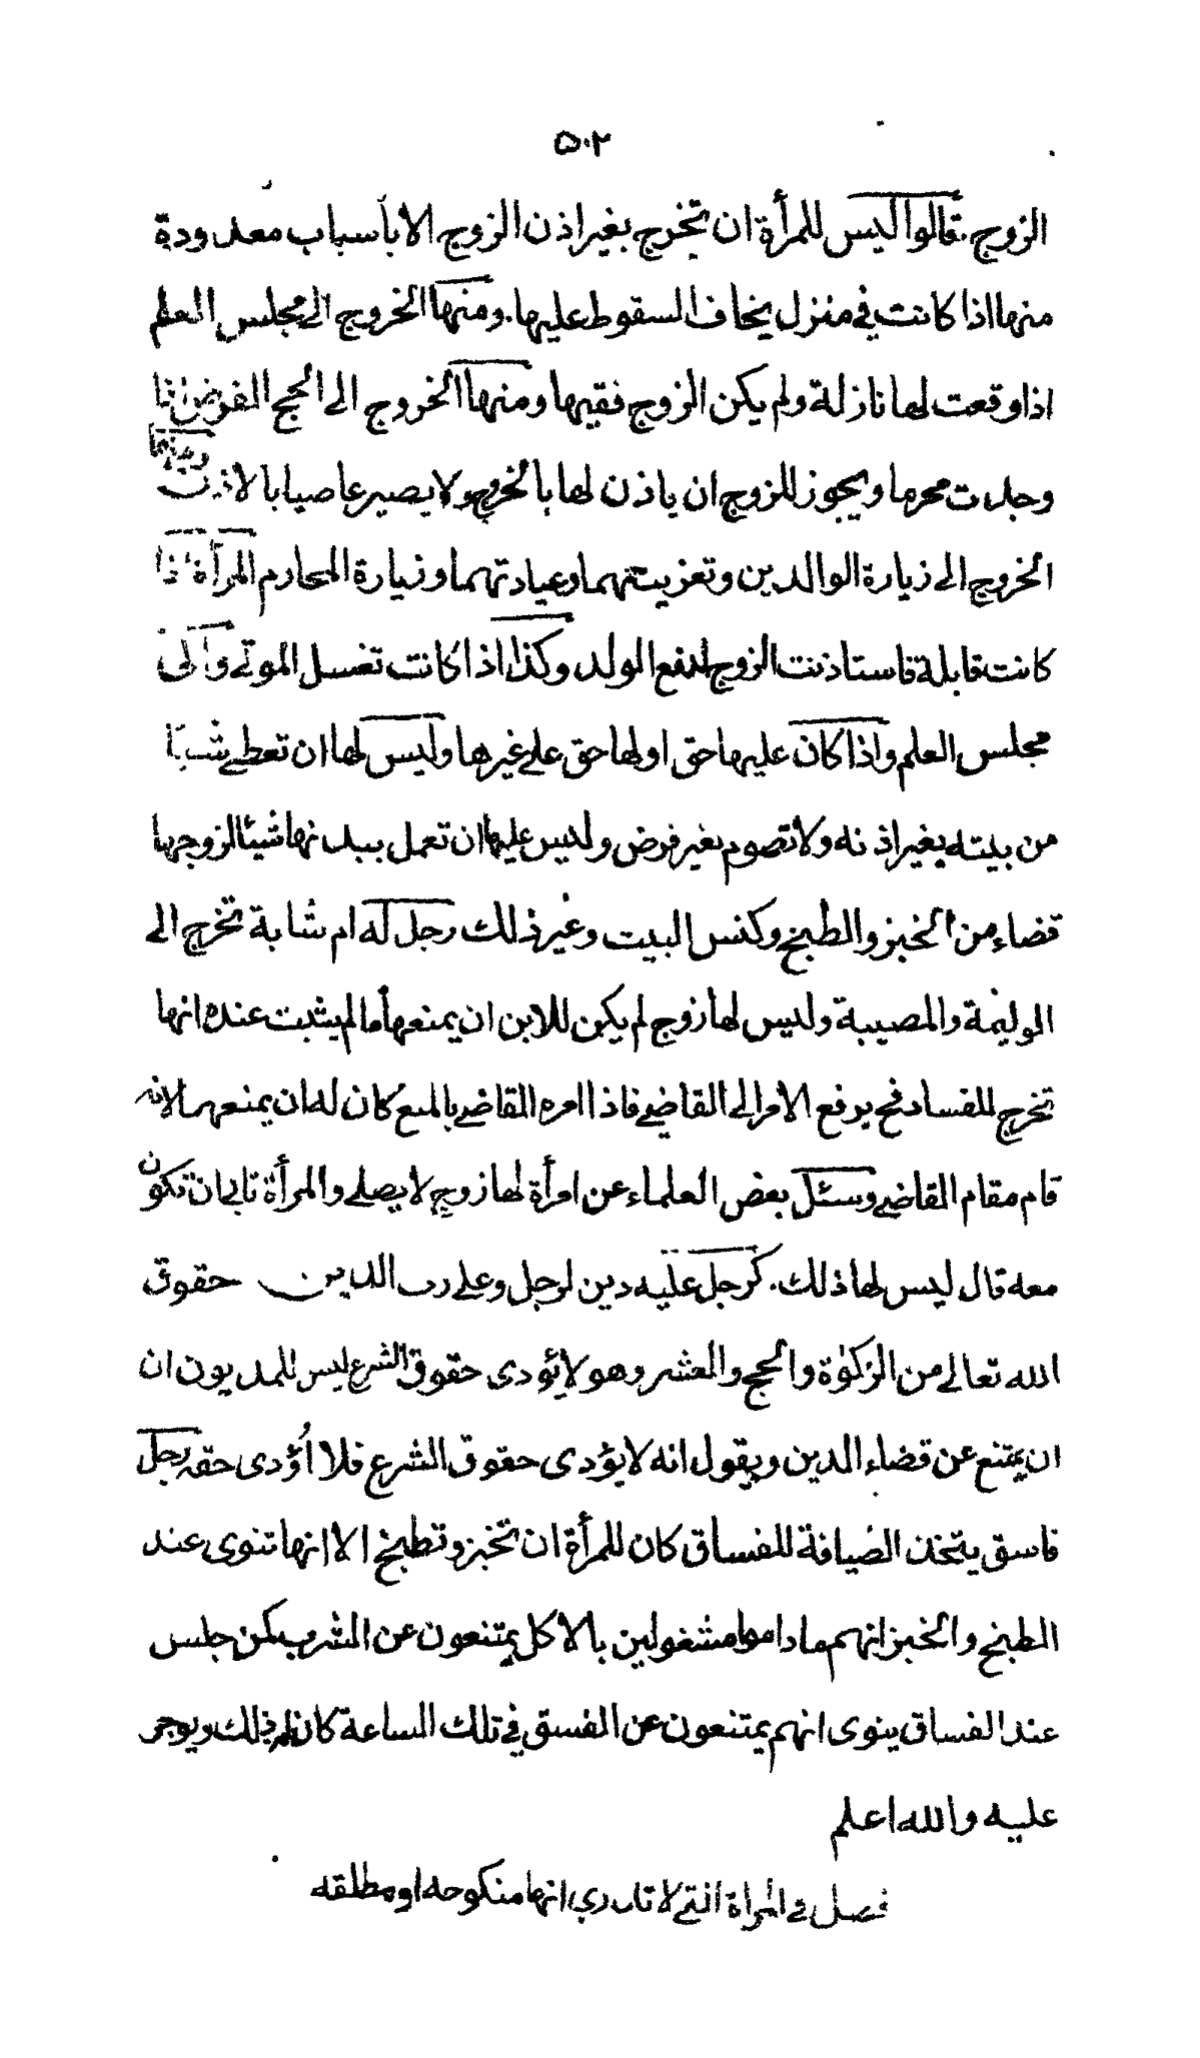 ۵۰۲
الزوج. قالوا ليس للمرأة ان تخرج بغير اذن الزوج الا بأسباب معدودة
منها اذا كانت في منزل يخاف السقوط عليها. ومنها الخروج الى مجلس العلم
اذا وقعت لها نازلة ولم يكن الزوج فقيها ومنها الخروج الى الحج الفرض اذا
وجدت محرما ويجوز للزوج ان ياذن لها بالخروج ولا يصير عاصيا بالاذن
الخروج الى زيارة الوالدين وتعزيتهما وعيادتهما وزيارة المحارم المرأة اذا
كانت قابلة فاستاذنت الزوج لدفع الولد وكذا اذا كانت تغسل الموتى والى
مجلس العلم واذا كان عليها حق او لها حق على غيرها وليس لها ان تعطى شيئا
من بيته بغير اذنه ولا تصوم بغير فرض وليس عليها ان تعمل ببدنها شيئا لزوجها
قضاء من الخبز والطبخ وكنس البيت وغير ذلك رجل له ام شابة تخرج الى
الوليمة والمصيبة وليس لها زوج لم يكن للابن ان يمنعها ما لم يثبت عنده انها
تخرج للفساد فح يرفع الامر الى القاضي فاذا امره القاضي بالمنع كان له ان يمنعها لانه
قام مقام القاضي وسئل بعض العلماء عن امرأة لها زوج لا يصلى والمرأة تابى ان تكون
معه قال ليس لها ذلك. كرجل عليه دين لرجل وعلى رب الدين حقوق
الله تعالى من الزكوٰة والحج والعشر وهو لا يؤدى حقوق الشرع ليس للمديون ان
ان يمتنع عن قضاء الدين ويقول انه لا يؤدى حقوق الشرع فلا اُؤدى حقه رجل
فاسق يتخذ الضيافة للفساق كان للمرأة ان تخبز وتطبخ الا انها تنوى عند
الطبخ والخبز انهم ما داموا مشغولين بالاكل يمتنعون عن الشرب كمن جلس
عند الفساق ينوى انهم يمتنعون عن الفسق في تلك الساعة كان له ذلك ويوجر
عليه والله اعلم
فصل في المراة التي لا تدري انها منكوحه او مطلقه